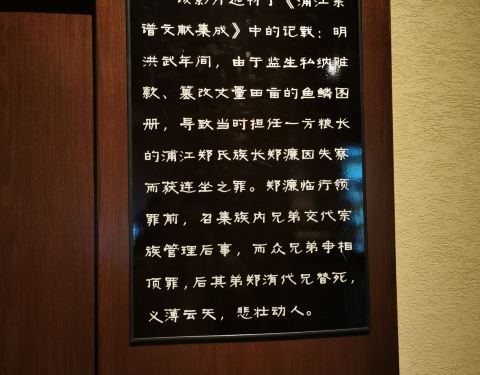 谱文献集成》中的记载：明
洪武年间，由于监生私纳赃
款、篡改丈量田亩的鱼鳞图
册，导致当时担任一方粮长
的浦江郑氏族长郑濂因失察
而获连坐之罪。郑濂临行领
罪前，召集族内兄弟交代宗
族管理后事，而众兄弟争相
顶罪，后其弟郑洧代兄替死，
义薄云天，悲壮动人。